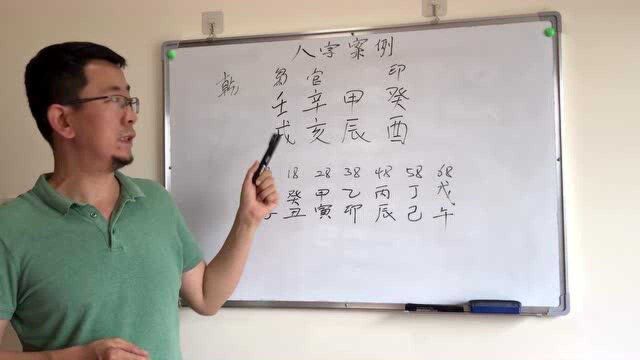 八字案例
乾 枭 官 印
壬 辛 甲 癸
戌 亥 辰 酉
18 28 38 48 58 68
癸 甲 乙 丙 丁 戊
丑 寅 卯 辰 己 午